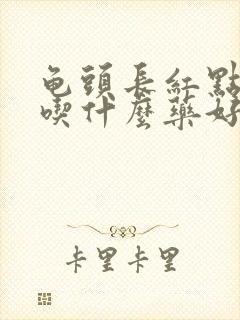 龟頭長紅點
喫什麼藥好
卡里卡里